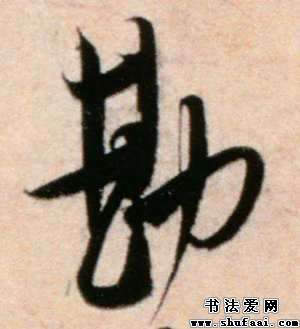 勘
书法爱网
www.shufaai.com